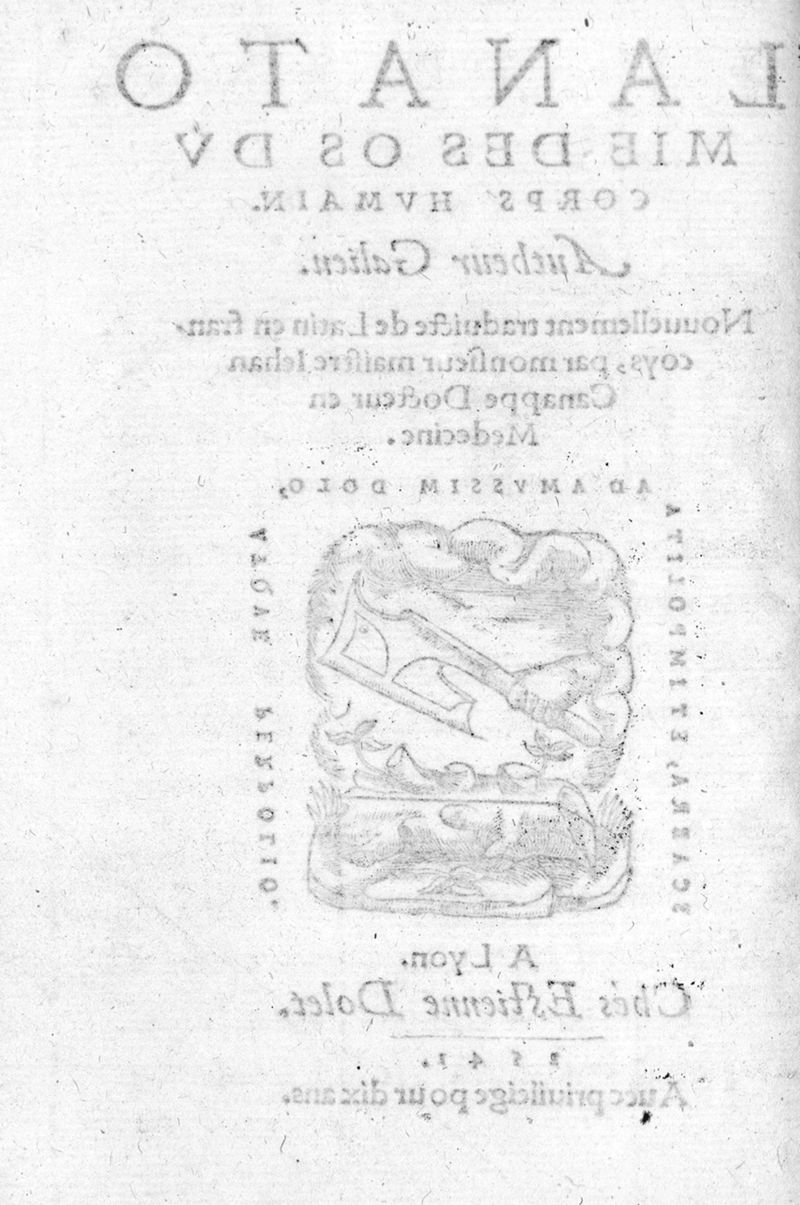 LANATO
MIE DES OS DV
CORPS HVMAIN.
Autheur Galien.
Nouuellement traduicte de Latin en fran-
coys, par monsieur maistre Iehan
Canappe Docteur en
Medecine.
AD AMVSSIM DOLO,
SCABRA, ET IMPOLITA
ATQVE PERPOLIO.
A Lyon.
Chés Estienne Dolet.
1541.
Auec priuileige pour dix ans.